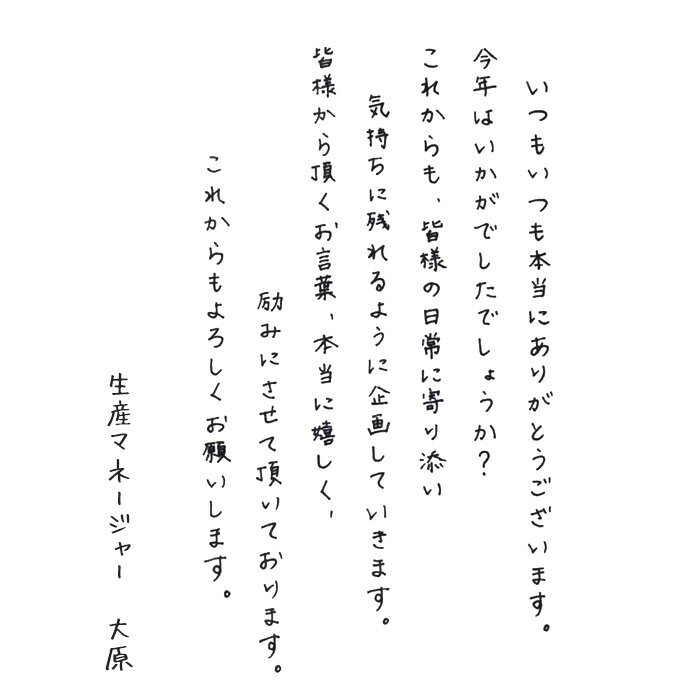 いつもいつも本当にありがとうございます。
今年はいかがでしたでしょうか?
これからも、皆様の日常に寄り添い
気持ちに残れるように企画していきます。
皆様から頂くお言葉、本当に嬉しく、
励みにさせて頂いております。
これからもよろしくお願いします。
生産マネージャー 大原